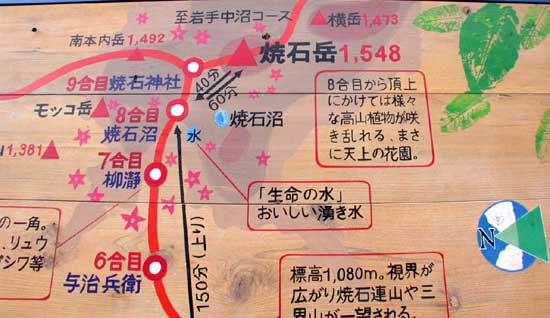 至岩手中沼コース
横岳1,473
南本内岳1,492
焼石岳1,548
9合目焼石神社
40分
60分
モッコ岳
8合目
焼石沼
水
焼石沼
8合目から頂上
にかけては様々
な高山植物が咲
き乱れる、まさ
に天上の花園。
1,381
7合目
柳瀞
「生命の水」
おいしい湧き水
の一角。
、リュウ
シワ等
6合目
与治兵衛
150分(上り)
N
標高1,080m。視界が
広がり焼石連山や三
界山が一望される。